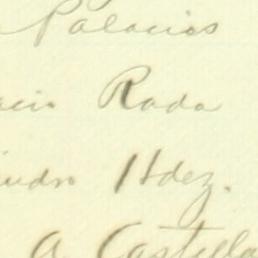 Palacios
acio Rada
Hdez.
A. Castella